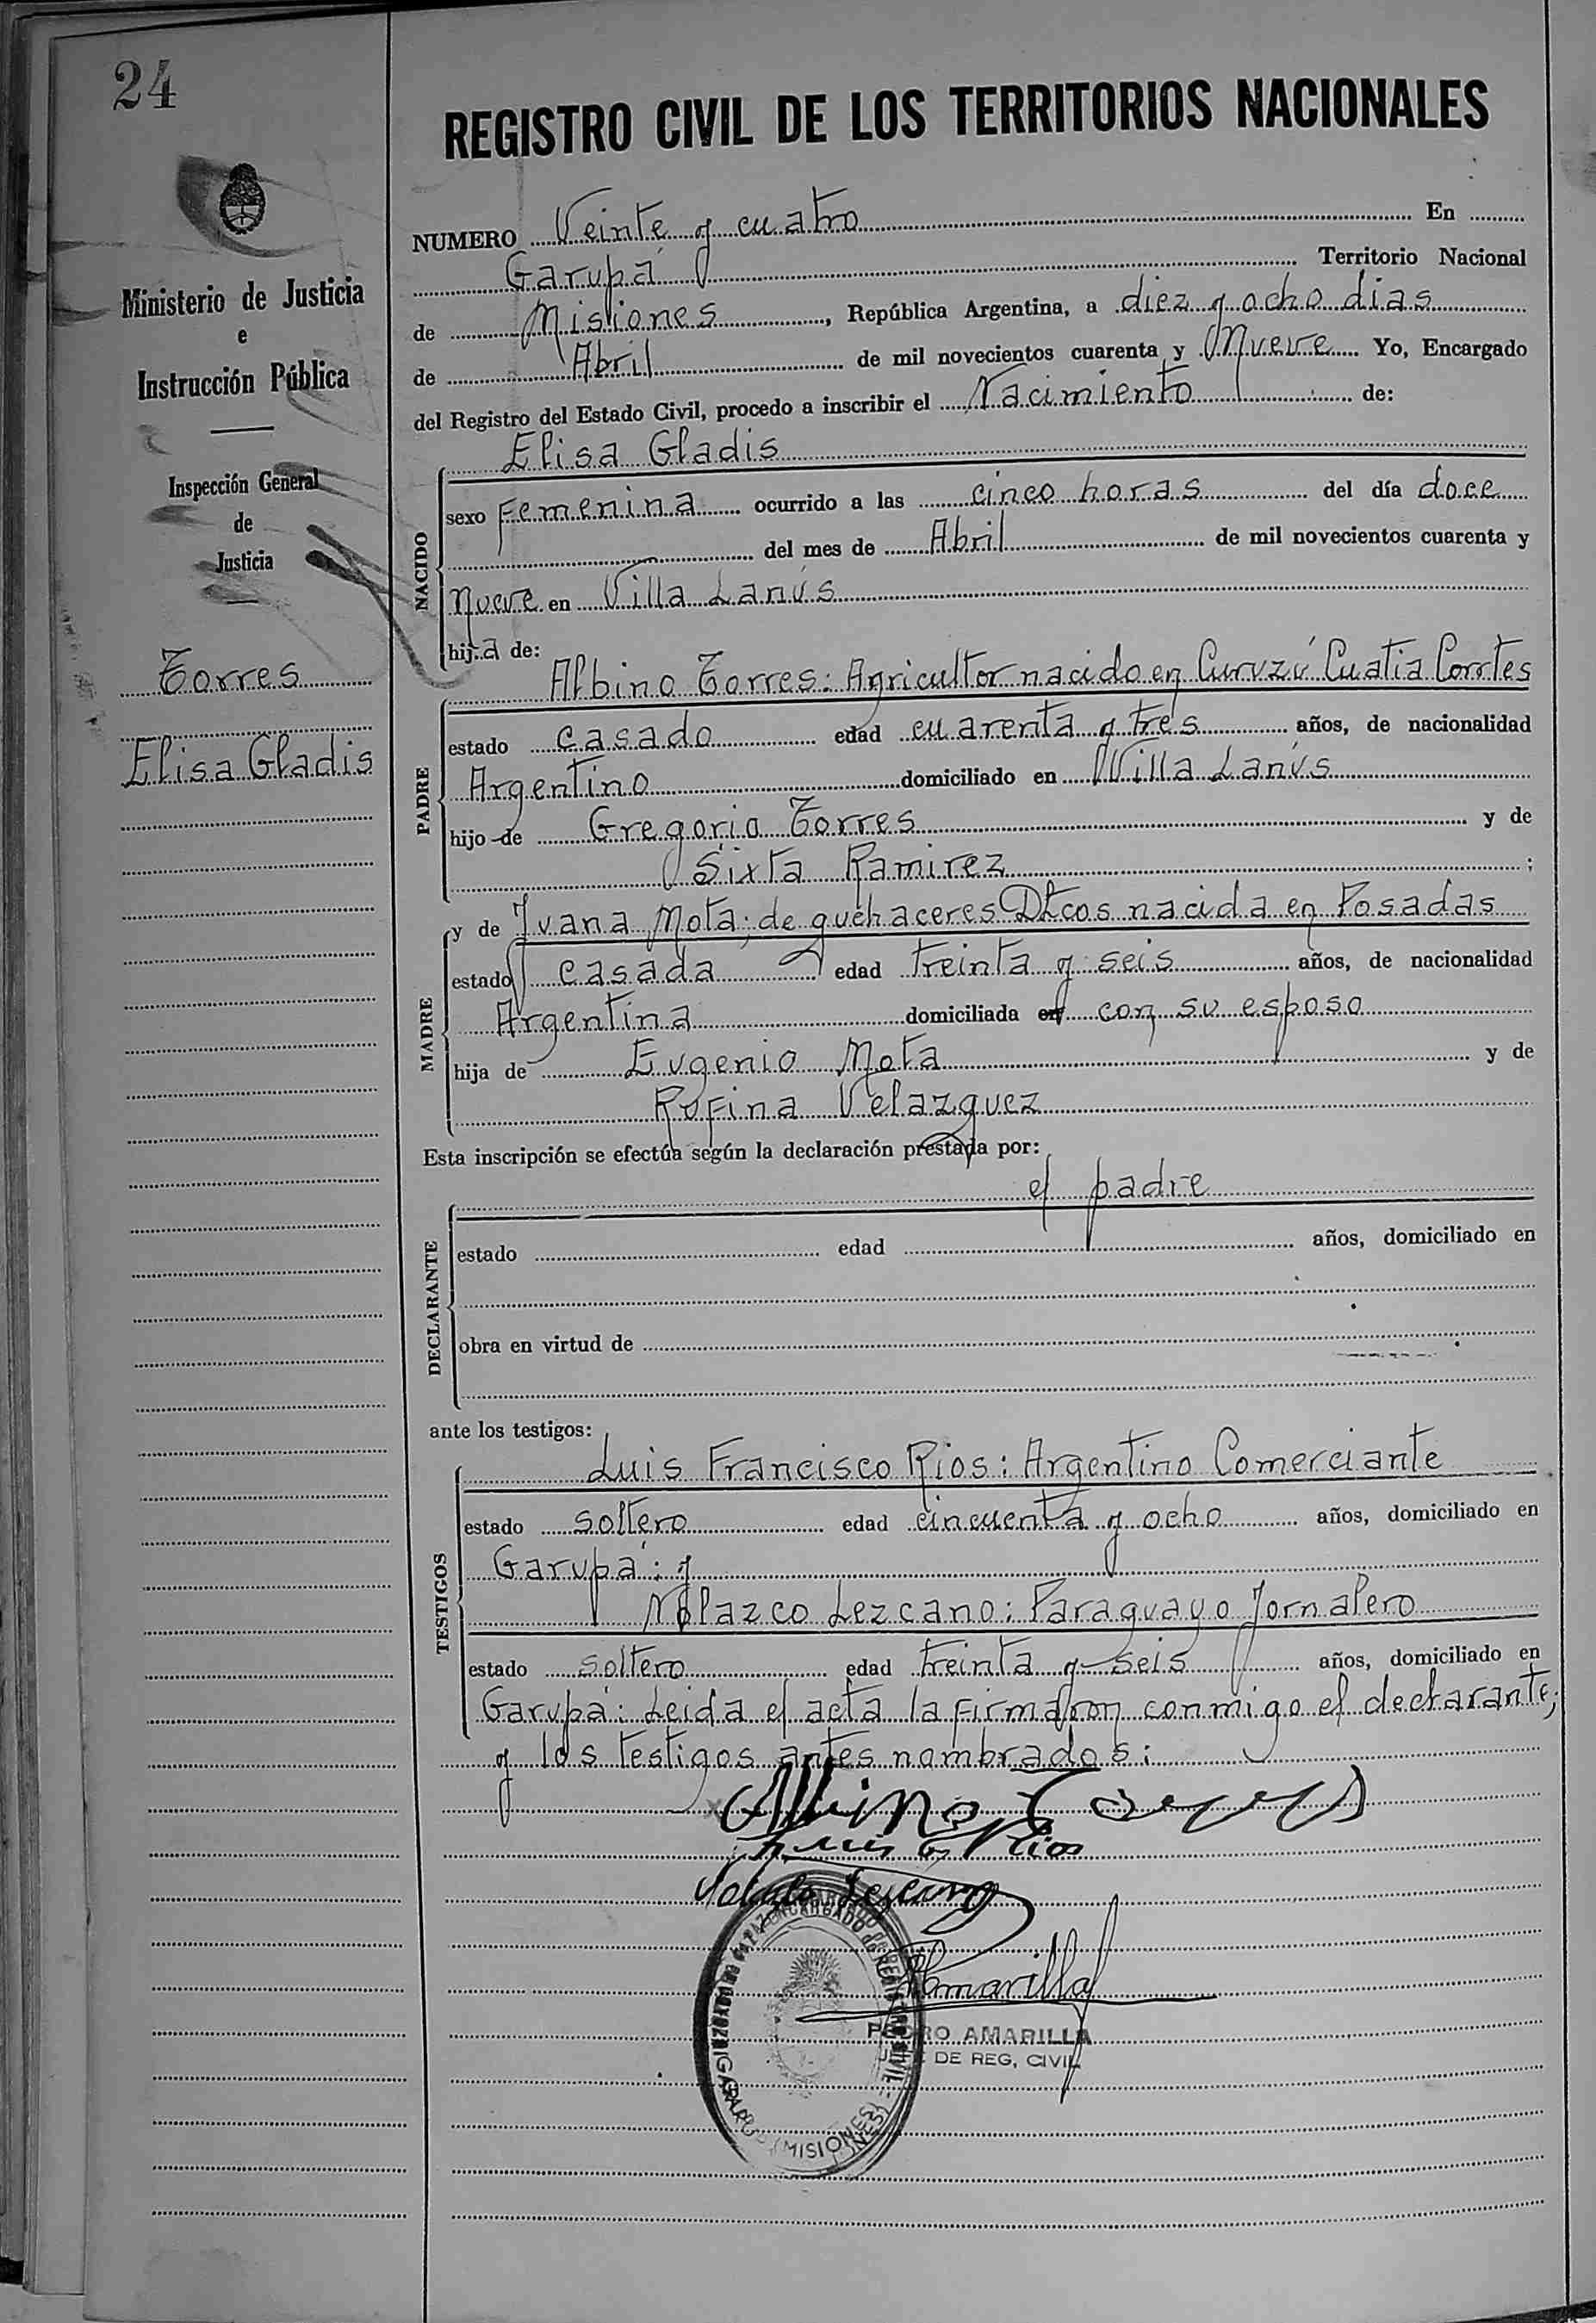 24
REGISTRO CIVIL DE LOS TERRITORIOS NACIONALES
Ministerio de Justicia
e
Instrucción Pública
Inspección General
de
Justicia
Torres
Elisa Gladis
NUMERO Veinte y cuatro En
Garupá Territorio Nacional
de Misiones, República Argentina, a diez y ocho dias
de Abril de mil novecientos cuarenta y Nueve Yo, Encargado
del Registro del Estado Civil, procedo a inscribir el Nacimiento de:
NACIDO
Elisa Gladis
sexo Femenina ocurrido a las cinco horas del día doce
del mes de Abril de mil novecientos cuarenta y
Nueve en Villa Lanús
hija de:
PADRE
Albino Torres: Agricultor nacido en Curuzú Cuatia Corrtes
estado casado edad cuarenta y tres años, de nacionalidad
Argentino domiciliado en Villa Lanús
hijo de Gregorio Torres y de
Sixta Ramirez ;
MADRE
y de Juana Mota; de quehaceres Dtcos nacida en Posadas
estado casada edad treinta y seis años, de nacionalidad
Argentina domiciliada en con su esposo
hija de Eugenio Mota y de
Rufina Velazquez
Esta inscripción se efectúa según la declaración prestada por:
DECLARANTE
el padre
estado edad años, domiciliado en
obra en virtud de
ante los testigos:
TESTIGOS
Luis Francisco Rios: Argentino Comerciante
estado soltero edad cincuenta y ocho años, domiciliado en
Garupá: y
Nolazco Lezcano: Paraguayo Jornalero
estado soltero edad treinta y seis años, domiciliado en
Garupá: Leida el acta la firmaron conmigo el declarante;
y los testigos antes nombrados:
Albino Torres
Luis F Rios
Lescano
PAmarilla
PEDRO AMARILLA
DE REG. CIVIL
ENCARGADO de REGISTRO CIVIL
(MISIONES)